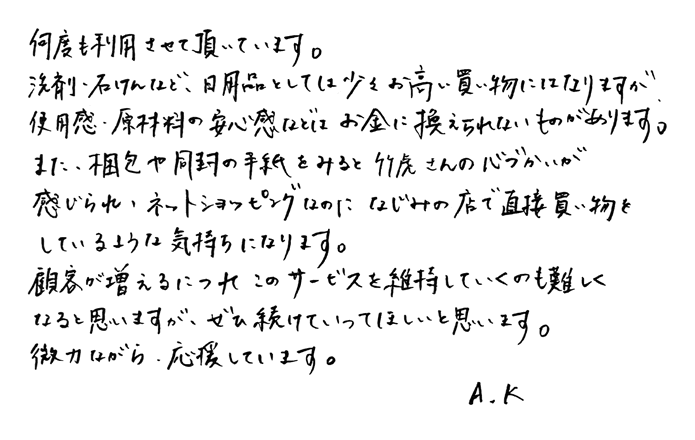 何度も利用させて頂いています。
洗剤・石けんなど、日用品としては少々お高い買い物にはなりますが
使用感・原材料の安心感などはお金に換えられないものがあります。
また、梱包や同封の手紙をみると竹虎さんの心づかいが
感じられ、ネットショッピングなのになじみの店で直接買い物を
しているような気持ちになります。
顧客が増えるにつれこのサービスを維持していくのも難しく
なると思いますが、ぜひ続けていってほしいと思います。
微力ながら、応援しています。
A.K